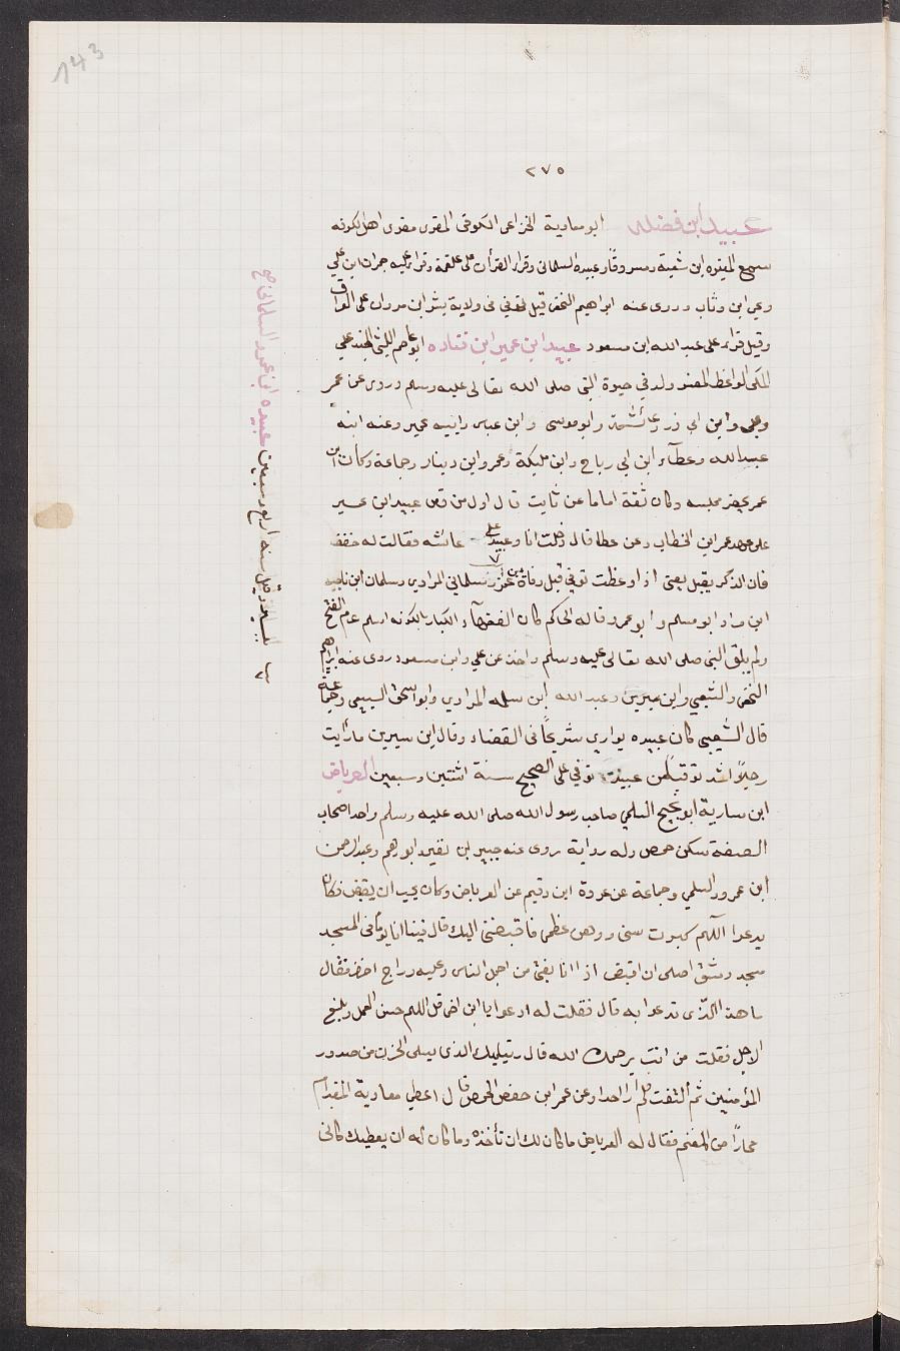 143
٢٧٥
عبيد ابن فضله ابو معاوية الخزاعى الكوفى المقرى مقرى اهل الكوفه
سمع المغيره ابن شعبة ومسروقا وعبيده السلمانى وقرا القرأن على علقمة وقرا عليه حمران ابن
وعي ابن وثاب وروى عنه ابراهيم النخعى قيل توفى فى ولاية بشر ابن مروان على العراق
وقيل قراء على عبد الله ابن مسعود عبيد ابن عمير ابن قتاده ابو عاصم الليثى الجندعلي
المكى الواعظ المفسر ولد في حيوة النبى صلى الله تعالى عليه وسلم وروى عن عمر
وعلى وابن ابى ذر وعائشة وابو موسى وابن عباس وابيه عمير وعنه ابنه
عبدالله وعطاء ابن ابى رباح وابن مليكة وعمر وابن دينار وجماعة وكان ابن
عمر يحضر مجلسه وكان ثقة اماما عن ثابت قال اول من قص عبيد ابن عمير
على عهد عمر ابن الخطاب وعن عطا قال دخلت انا وعبيد على عائشه فقالت له خفف
فان الذكر ثقيل يعنى اذا وعظت توفي قبل وفاة ابن عمر سلماني المرادى وسلمان ابن ناجيه
ابن مراد ابو مسلم وابو عمرو قاله الحاكم كان الفقهاء الكبار بالكوفه اسلم عام الفتح
ولم يلق النبى صلى الله تعالى عليه وسلم واخذ عن علي وابن مسعود روى عنه ابراهيم
النخعى والشعبي وابن سيرين وعبد الله ابن سلمه المرادى وابو اسحق السبيعى وجماعة
قال الشعبي كان عبيده يوازي شريحا فى القضاء وقال ابن سيرين ما رأيت
رجلا اشد توقيا من عبيدة توفي على الصحيح سنة اثنتين وسبعين العرباض
ابن سارية ابو نجيح السلمي صاحب رسول الله صلى الله عليه وسلم واحد اصحاب
الصفة سكن حمص وله رواية روى عنه جبير ابن نفير وابو رهم وعبد الرحمن
ابن عمرو السلمي وجماعة عن عروة ابن رويم عن العرباض وكان يحب ان يقبض فكان
يدعوا اللهم كبرت سنى ووهن عظمى فاقبضنى اليك قال فبينا انا يوما فى المسجد
مسجد دمشق اصلى ان اقبض اذا انا بفتى من اجمل الناس وعليه دواج اخضر فقال
ما هذا الذى تدعوا به قال فقلت له ادعوا يا ابن اخى قل اللهم حسن العمل وبلغ
الاجل فقلت من انت يرحمك الله قال رتيليك الذى يسلى الحزن من صدور
المؤمنين ثم التفت فلم ار احدا وعن عمر ابن حفص الحمصى قال اعطى معاوية المقدام
حمارا من المغنم فقال له العرباض ما كان لك ان تأخذه وما كان له ان يعطيك كانى
عبيده ابن عمرو السلمانى سنه اربع وسبعين